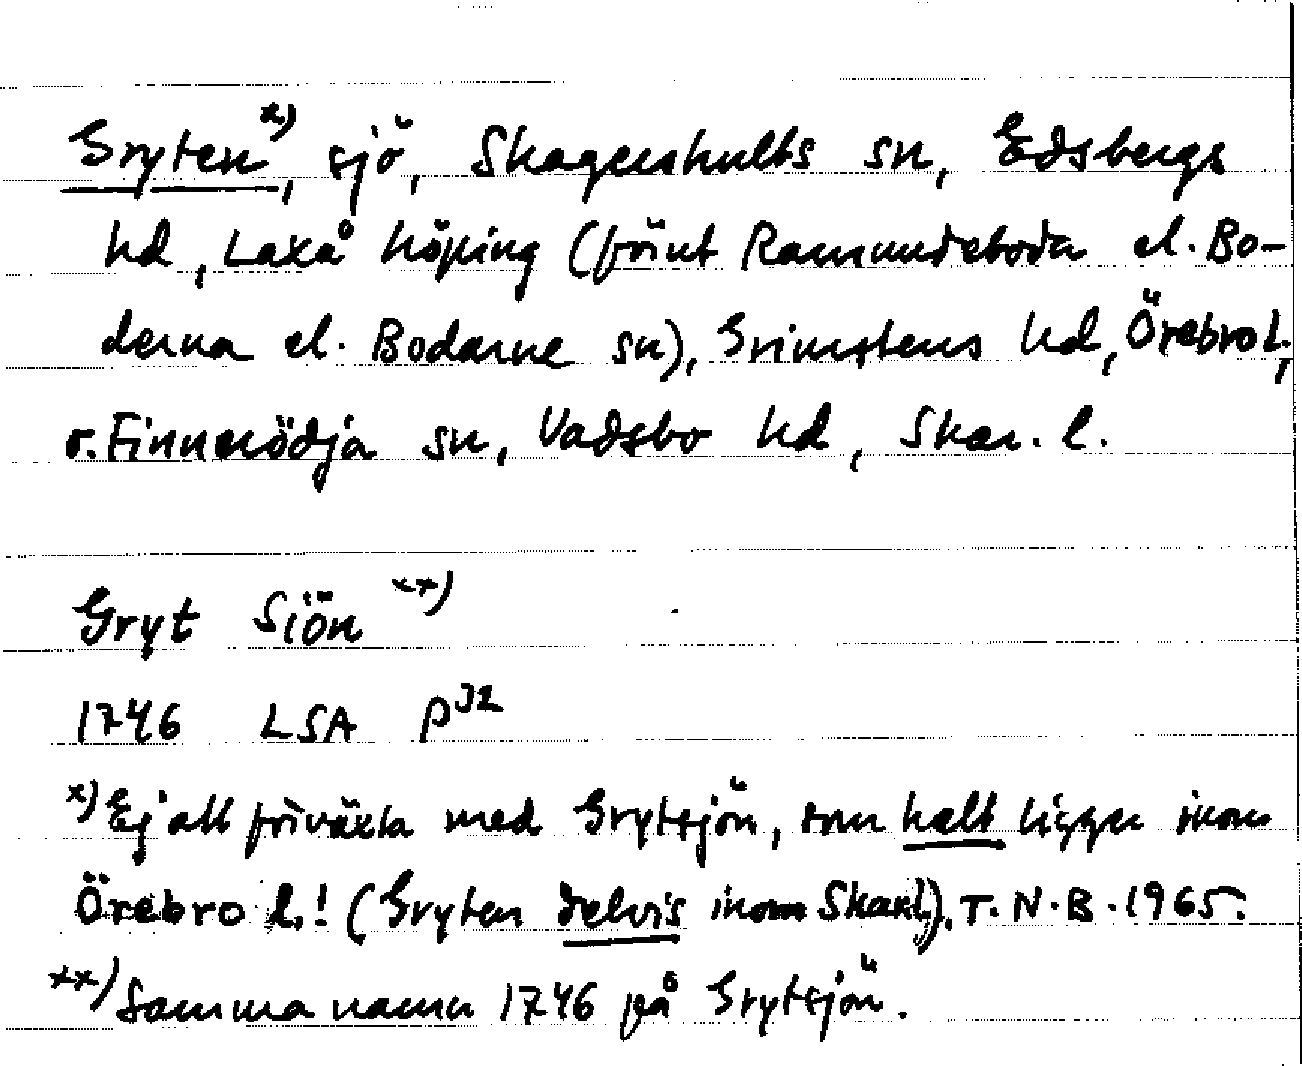 Gryten x), sjö, Skagershults sn, Edsbergs
hd, Laxå köping (förut Ramundeboda el. Bo-
derna el. Bodarne sn), Grimstens hd, Örebro l.,
o. Finnerödja sn, Vadsbo hd, Skar. l.
Gryt Siön xx)
1746 LSA P32
x) Ej att förväxla med Grytsjön, som helt ligger inom
Örebro l.! (Gryten delvis inom Skar l). T.N.B. 1965.
xx) Samma namn 1746 på Grytsjön.